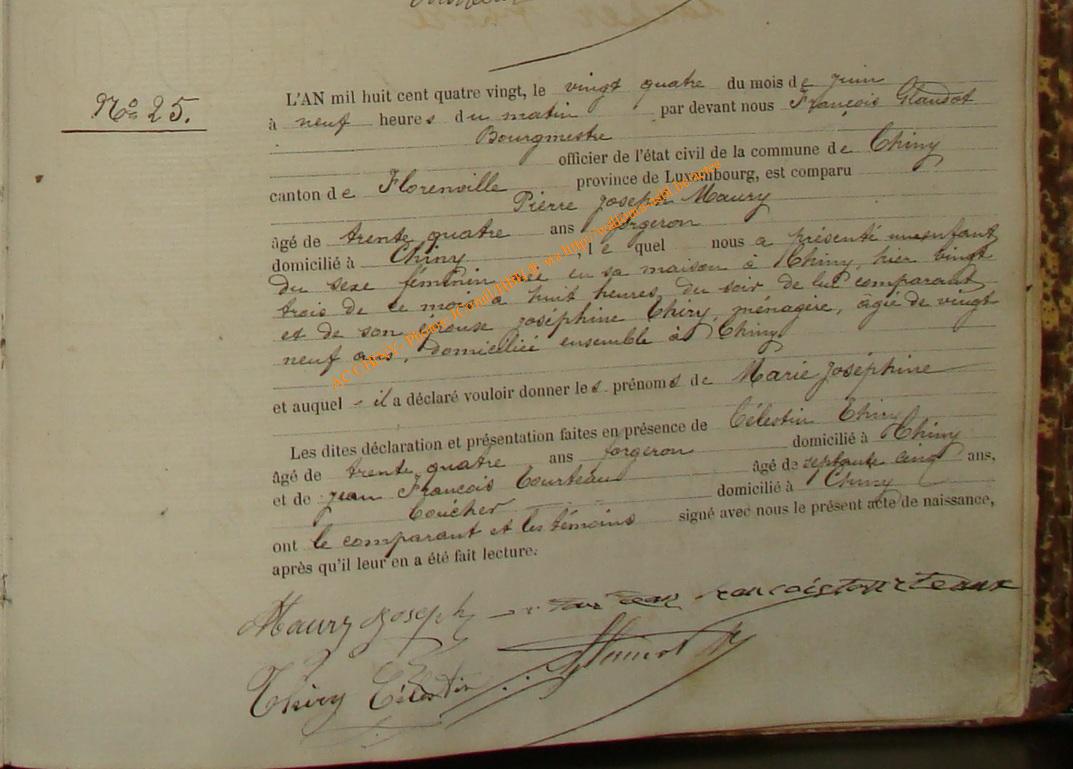 No 25.
L'AN mil huit cent quatre vingt, le vingt quatre du mois de juin
à neuf heures du matin par devant nous François Glaudot
Bourgmestre
officier de l'état civil de la commune de Chiny
canton de Florenville province de Luxembourg, est comparu
Pierre Joseph Maury
âgé de trente quatre ans forgeron
domicilié à Chiny, le quel nous a présenté un enfant
du sexe féminin née en sa maison à Chiny, hier vingt
trois de ce mois à huit heures du soir de lui comparant
et de son épouse Joséphine Thiry, ménagère, âgée de vingt
neuf ans, domiciliée ensemble à Chiny
et auquel - il a déclaré vouloir donner les prénoms de Marie Joséphine
Les dites déclaration et présentation faites en présence de Célestin Thiry
âgé de trente quatre ans forgeron domicilié à Chiny
et de jean François Tourteaux âgé de septante cinq ans,
domicilié à Chiny
ont le comparant et les témoins signé avec nous le présent acte de naissance,
après qu'il leur en a été fait lecture.
Maury Joseph jean francois tourteaux
Thiry Célestin